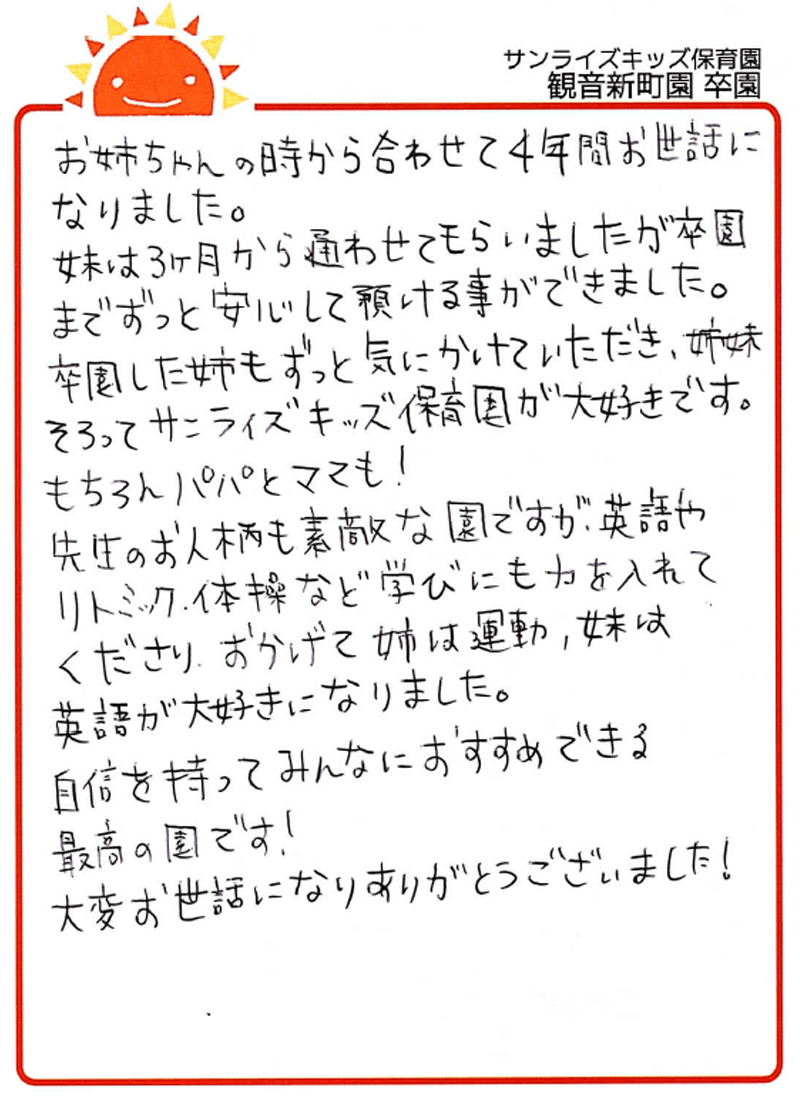 サンライズキッズ保育園
観音新町園 卒園
お姉ちゃんの時から合わせて4年間お世話に
なりました。
妹は3ヶ月から通わせてもらいましたが卒園
までずっと安心して預ける事ができました。
卒園した姉もずっと気にかけていただき、姉妹
そろってサンライズキッズ保育園が大好きです。
もちろんパパとママも!
先生のお人柄も素敵な園ですが、英語や
リトミック、体操など学びにも力を入れて
くださり、おかげで姉は運動,妹は
英語が大好きになりました。
自信を持ってみんなにおすすめできる
最高の園です!
大変お世話になりありがとうございました!